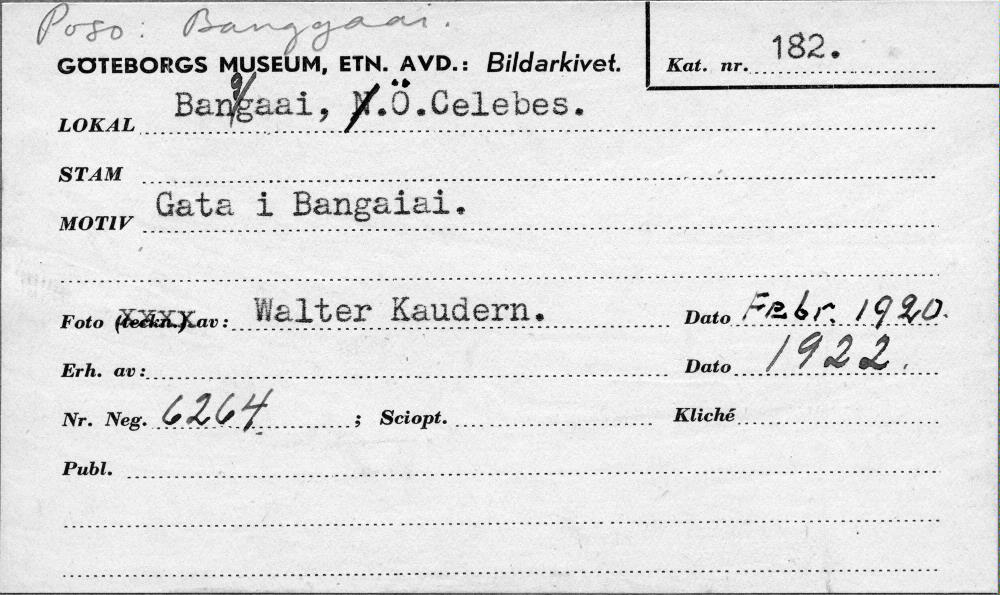 Poso: Banggaai.
GÖTEBORGS MUSEUM, ETN. AVD.: Bildarkivet.
Kat. nr. 182.
LOKAL Banggaai, N.Ö.Celebes.
STAM
MOTIV Gata i Bangaiai.
Foto (teckn.) av: Walter Kaudern. Dato Febr. 1920.
Erh. av: Dato 1922.
Nr. Neg. 6264 ; Sciopt. Kliché
Publ.